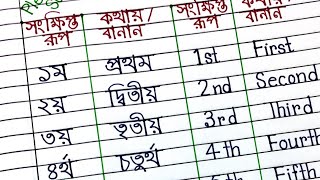 সংক্ষিপ্ত রূপ কথায়/ বানান সংক্ষিপ্ত রূপ বানান
১ম প্রথম 1st First
২য় দ্বিতীয় 2nd Second
৩য় তৃতীয় 3rd Third
৪র্থ চতুর্থ 4th Fourth
Fifth